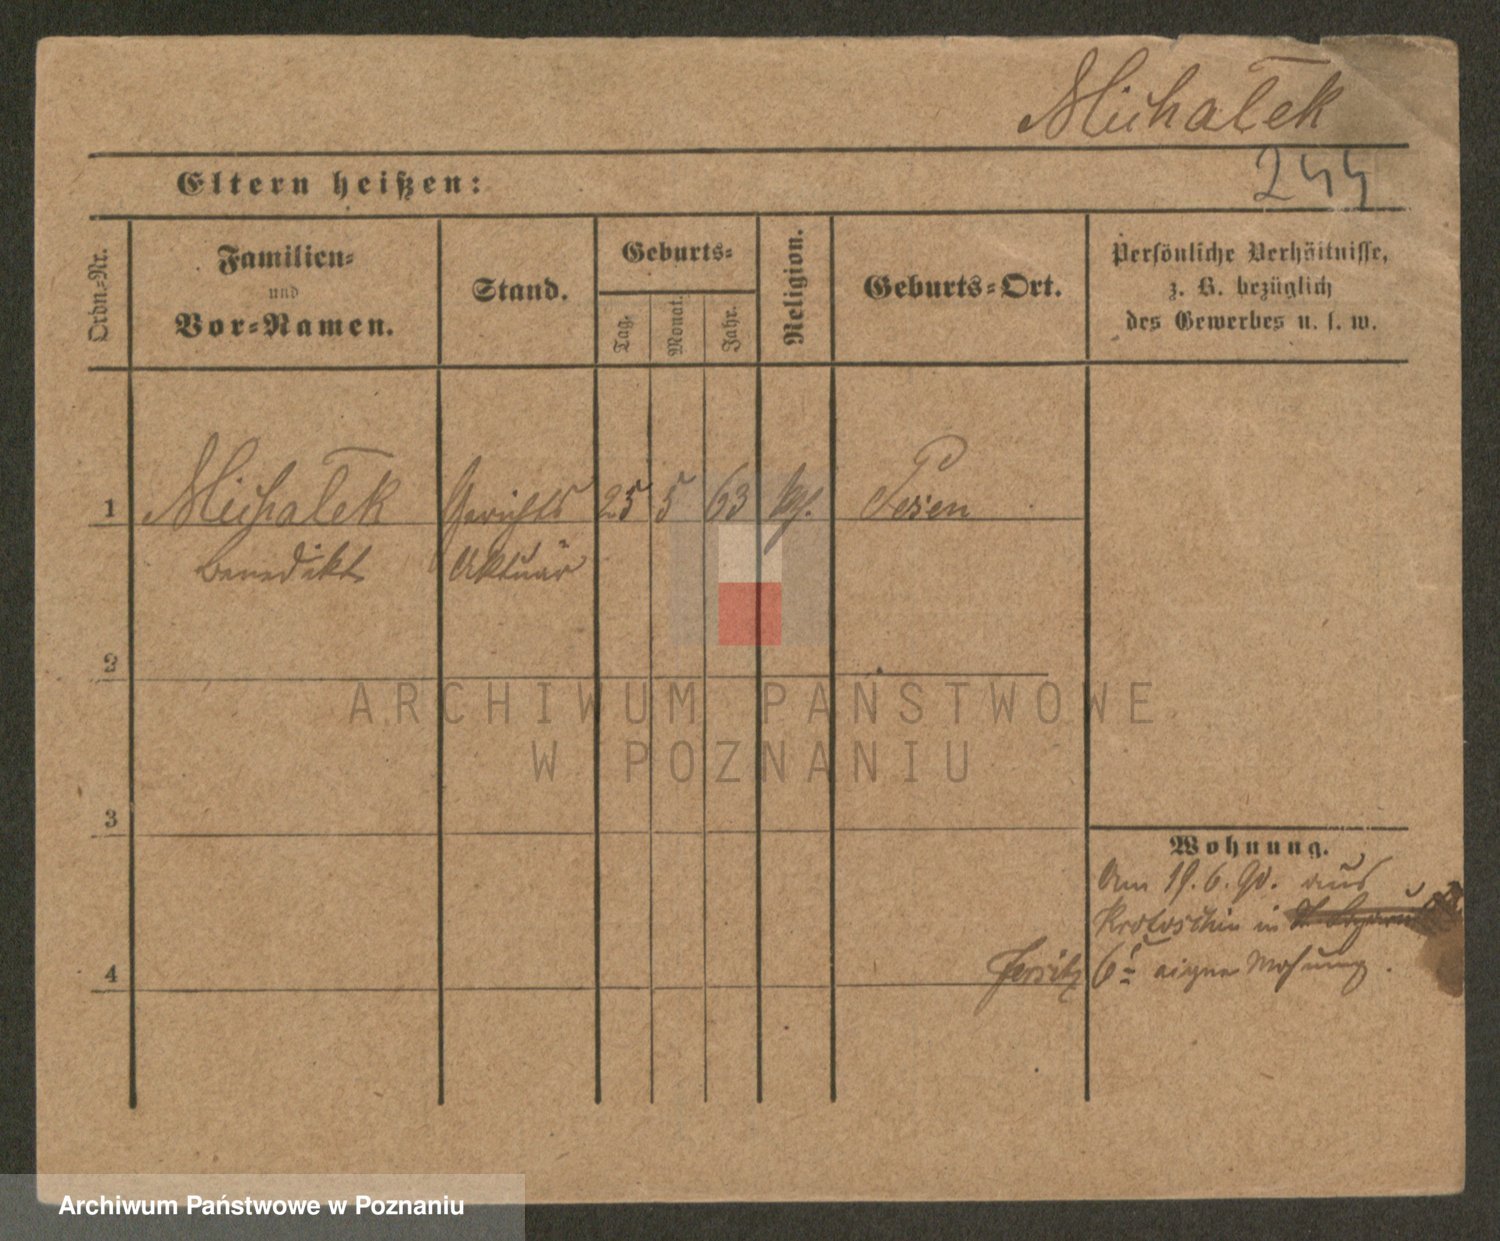 Michałek
244
Eltern heißen:
Ordn.-Nr.
Familien-
und
Vor-Namen.
Stand.
Geburts-
Tag.
Monat.
Jahr.
Religion.
Geburts-Ort.
Persönliche Verhältnisse,
z. B. bezüglich
des Gewerbes u. s. w.
1 Michałek Gerichts 25 5 63 kth. Posen
Benedikt Aktuar
2
ARCHIWUM PAŃSTWOWE
W POZNANIU
3
Wohnung.
Am 19.6.90. aus
Krotoschin in St. Lazarus
4 Jersitz 6 eigne Wohnung.
Archiwum Państwowe w Poznaniu